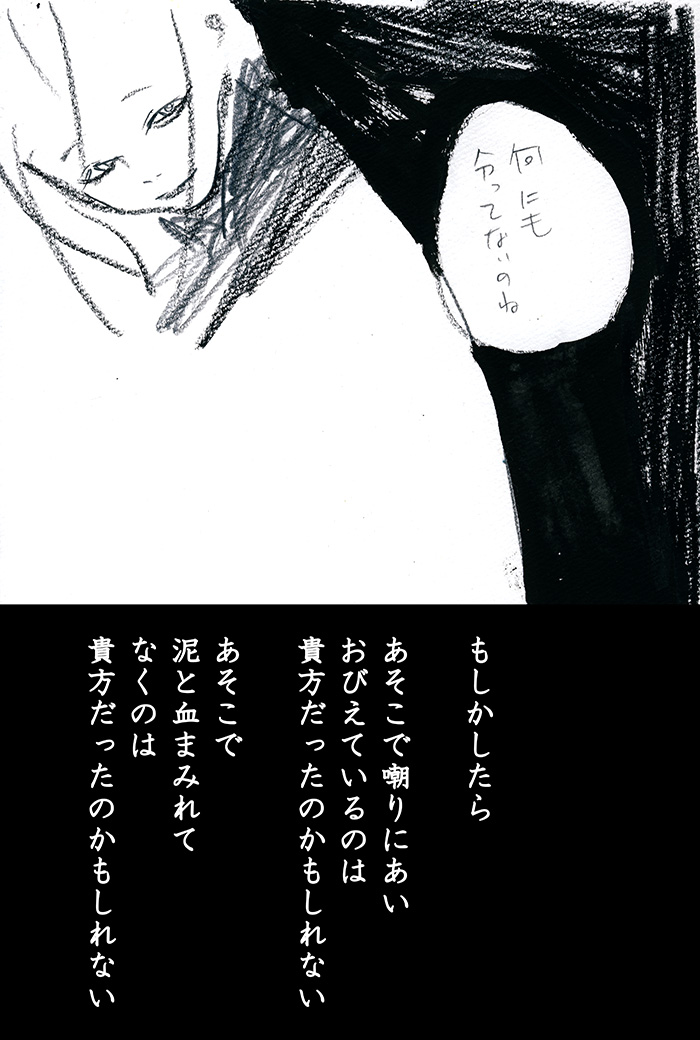 何にも
分ってないのね
もしかしたら
あそこで嘲りにあい
おびえているのは
貴方だったのかもしれない
あそこで
泥と血まみれて
なくのは
貴方だったのかもしれない